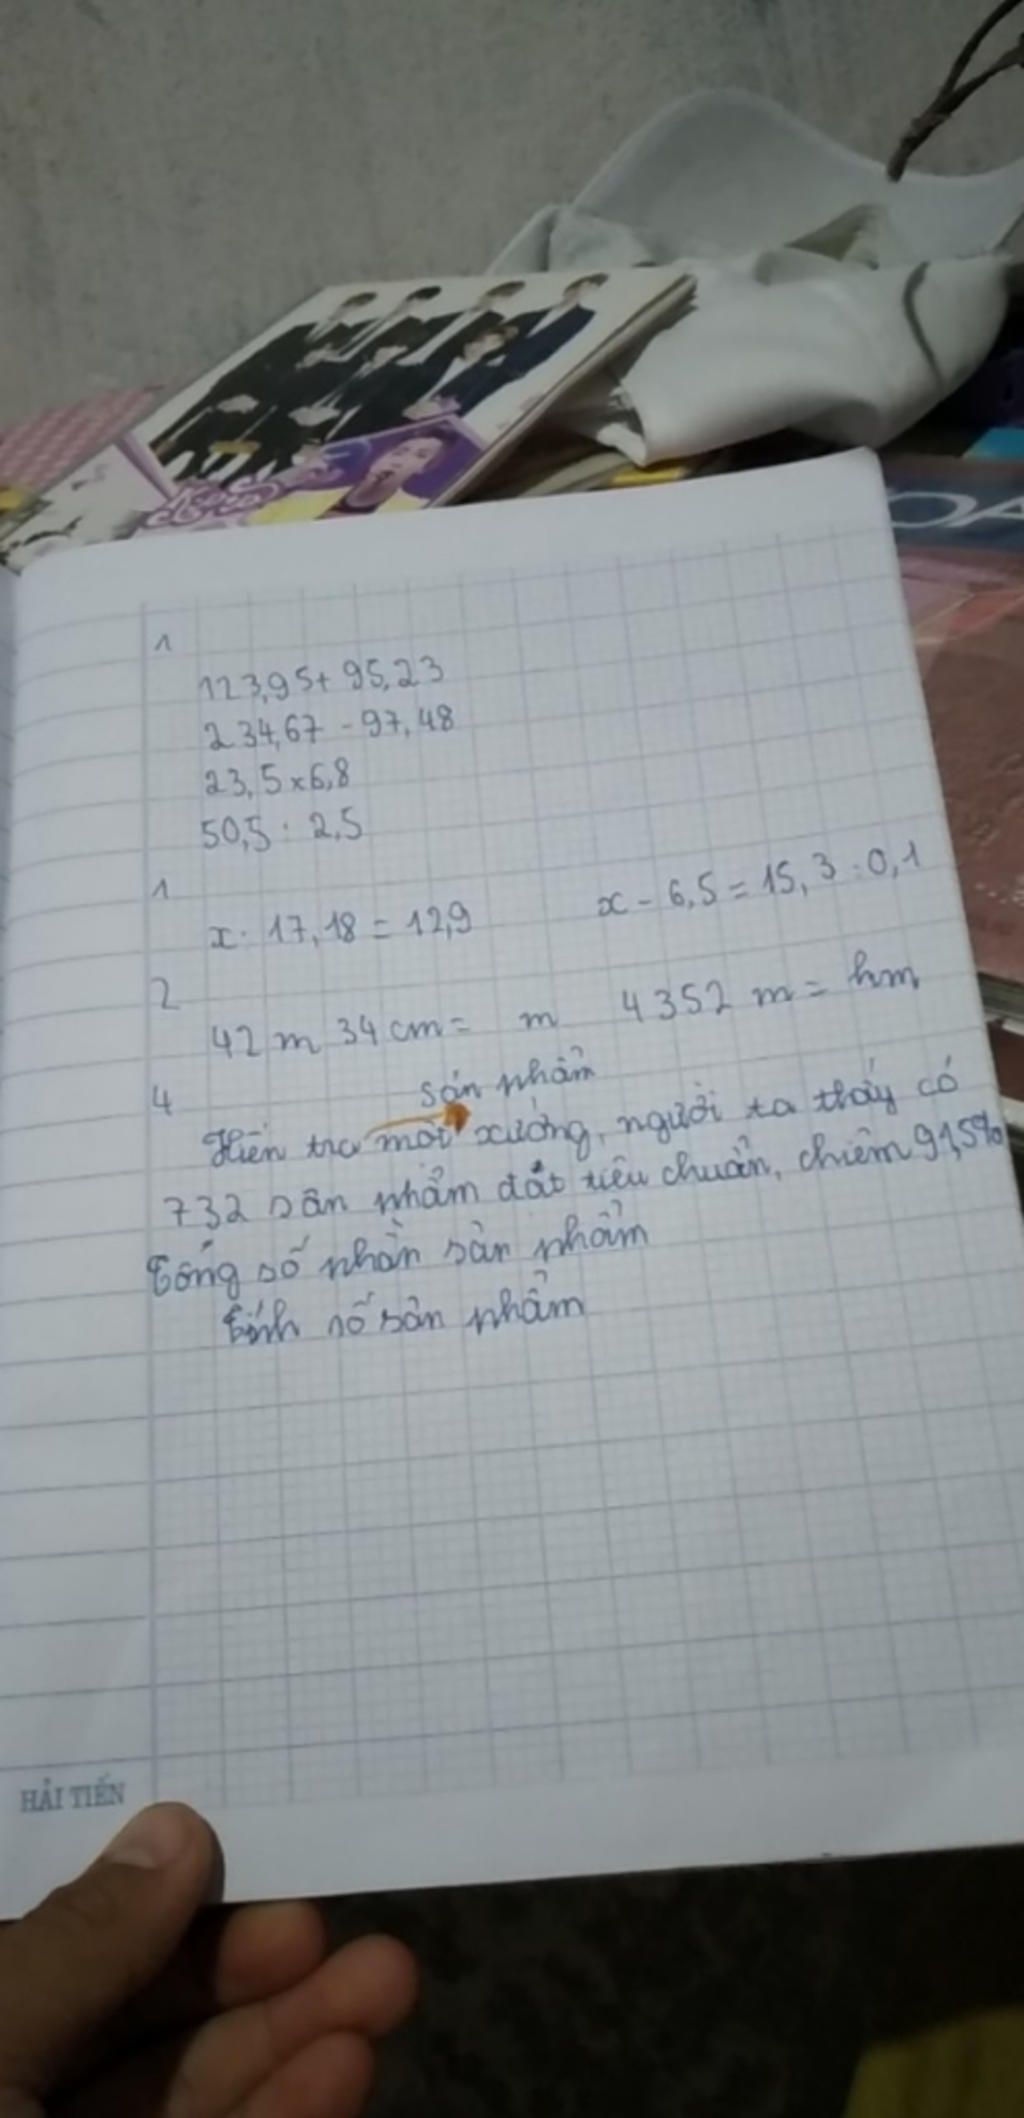 OA
1
123,95 + 95,23
234,67 - 97,48
23,5 x 6,8
50,5 : 2,5
1
x : 17,18 = 12,9 x - 6,5 = 15,3 : 0,1
2
42 m 34 cm = m 4352 m = hm
4 sản phẩm
tra một xưởng, người ta thấy có
732 sản phẩm đắt tiêu chuẩn, chiếm 91,5%
tổng số sản phẩm
tính số sản phẩm
HẢI TIẾN